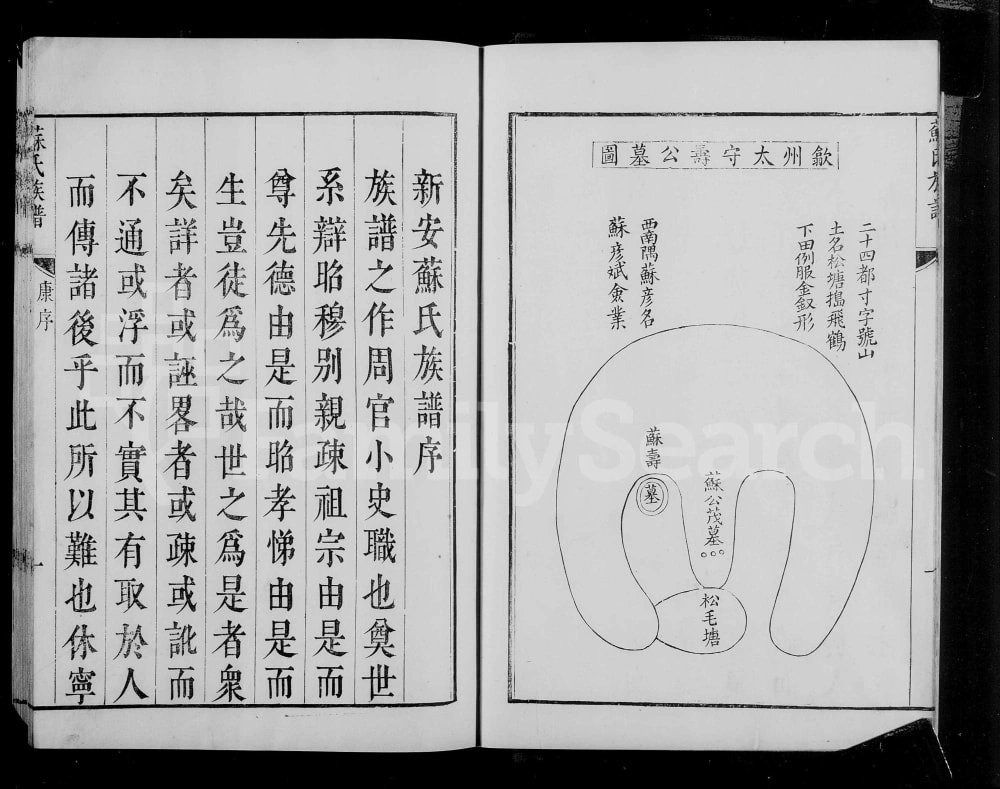 歙州太守壽公墓圖
二十四都寸字號山
土名松塘搗飛鶴
下田例服金釵形
西南隅蘇彥名
蘇彥斌僉業
蘇壽
墓
蘇公茂墓
松毛塘
新安蘇氏族譜序
族譜之作周官小史職也奠世
系辯昭穆别親疎祖宗由是而
尊先德由是而昭孝悌由是而
生豈徒爲之哉世之爲是者衆
矣詳者或誣畧者或疎或訛而
不通或浮而不實其有取於人
而傳諸後乎此所以難也休寧
蘇氏族譜
康序
一
FamilySearch